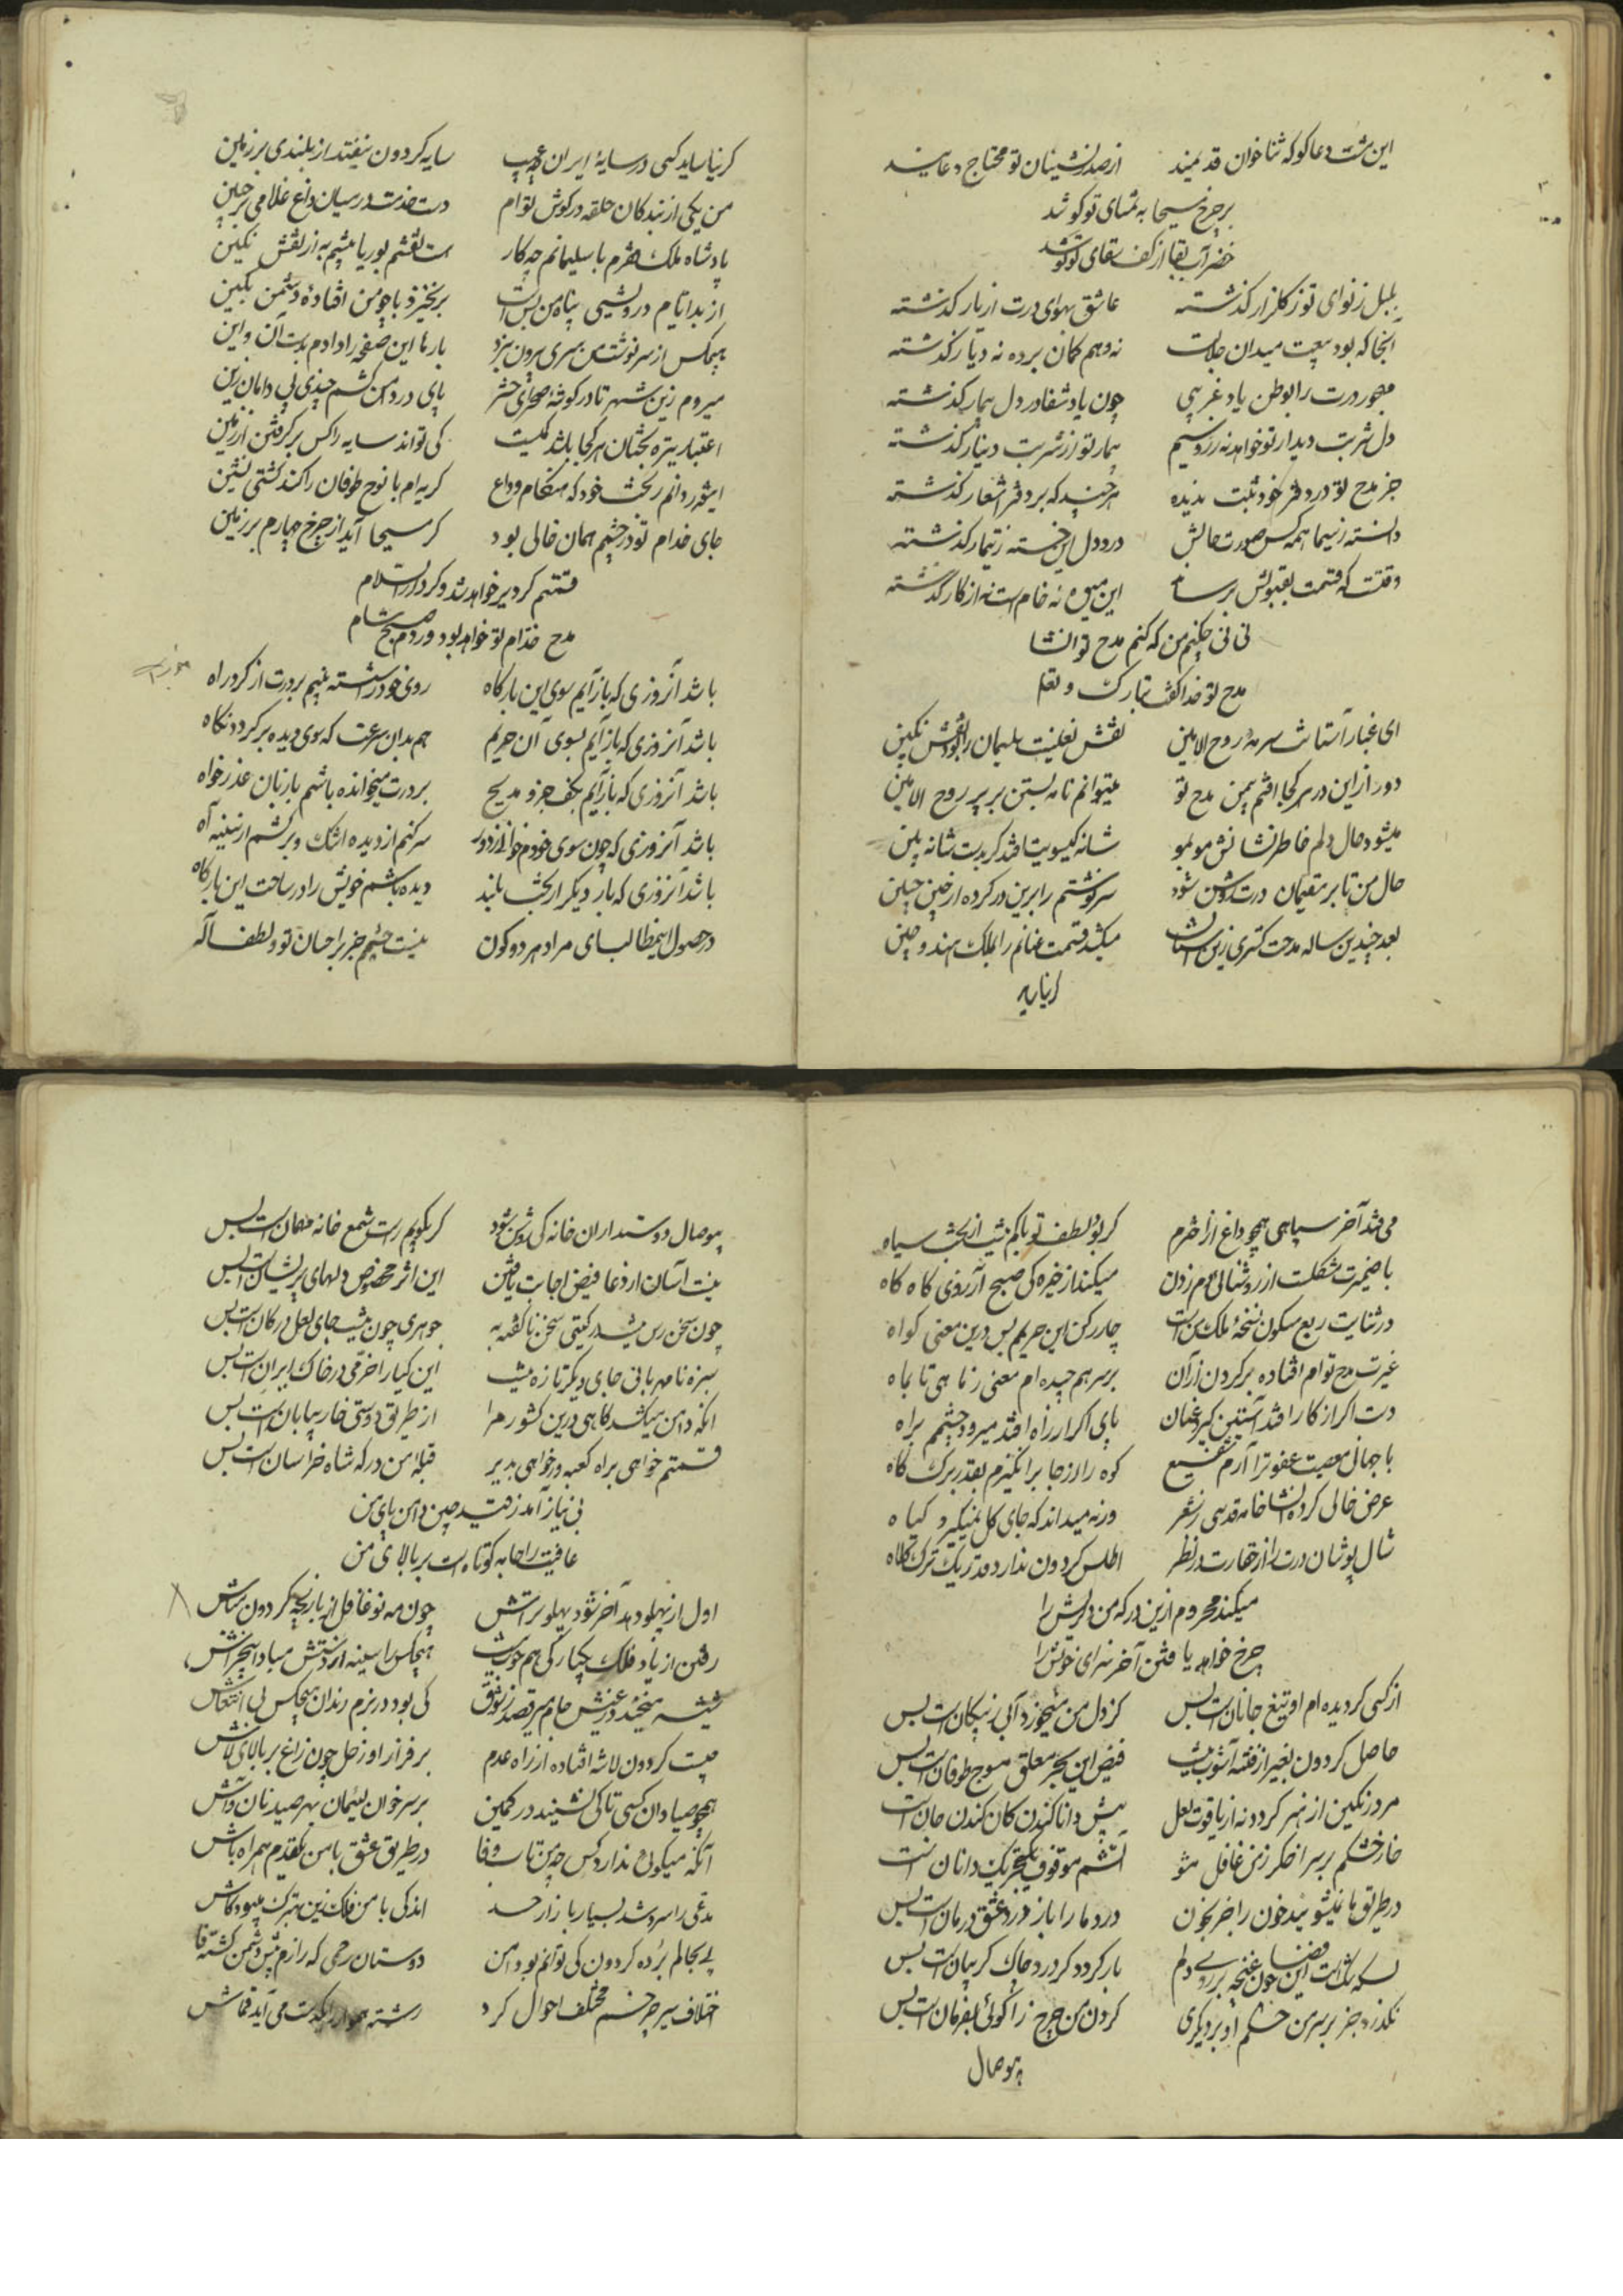 این مشت دعاگو که ثناخوان قدیمند از صدرنشینان تو محتاج دعایند
بر چرخ مسیحا به تمنای تو کوشد
خضر آب بقا از کف سقای تو نوشد
بلبل ز نوای تو ز گلزار گذشته عاشق بهوای درت از یار گذشته
آنجا که بود میدان جلالت نه وهم گمان برده نه دیار گذشته
مهجور درت را بوطن یاد غریبی چون یاد شفا در دل بیمار گذشته
دل شربت دیدار تو خواهد نه زر و سیم بیمار تو از شربت دینار گذشته
جز مدح تو در دفتر خود ثبت ندیده هر چند که بر دفتر اشعار گذشته
دانسته ز سیما همه کس صورت حالش درد دل این خسته ز تیمار گذشته
وقتست که قسمت بقبولش برساند این میوه نه خام است نه از کار گذشته
نی نی چکنم من که کنم مدح تو انشا
مدح تو خدا گفت تبارک و تعالی
ای غبار آستانت سرمهٔ روح الامین نقش نعلینت سلیمان را بود نقش نگین
دور ازین در هر کجا افتم بیمن مدح تو میتوانم نامه بستن بر پر روح الامین
میشود حال دلم خاطرنشانش مو بمو شانه گیسویت افتد گر بدست شانه بین
حال من تا بر مقیمان درت روشن شود سرگذشتم را برین در کرده ام از چین جبین
بعد چندین ساله مدحت گستری زین آستان میکشد قسمت عنانم را بملک هند و چین
گر نیاساید
گر نیاساید کسی در سایهٔ ایران عجب سایه گردون نیفتد از بلندی بر زمین
من یکی از بندگان حلقه در گوش توام دست خدمت در میان داغ غلامی بر جبین
پادشاه ملک فقرم با سلیمانم چه کار هست نقشم بوریا پیشم به از نقش نگین
از بد ایام درویشی پناه من بس است برنخیزد با چو من افتادهٔ دشمن بکین
هیچکس از سرنوشت من سری بیرون نبرد بارها این صفحه را دادم بدست آن و این
میروم زین شهر تا در گوشهٔ صحرای حشر پای در دامن کشم چندی پی دامان زین
اعتبار تیره بختان هر کجا باشد یکیست کی تواند سایه را کس برگرفتن از زمین
اینقدر دانم ز بخت خود که هنگام وداع گریه ام با نوح طوفان را کند کشتی نشین
جای خدام تو در چشمم همان خالی بود گر مسیحا آید از چرخ چهارم بر زمین
قسمتم گر دیر خواهد شد و گر دارالسلام
مدح خدام تو خواهد بود وردم صبح و شام
باشد آنروزی که بازآیم سوی این بارگاه روی خود را شسته بینم بر درت از گرد راه
باشد آنروزی که بازآیم بسوی آن حریم هم بدان سرعت که سوی دیده برگردد نگاه
باشد آنروزی که بازآیم بکف جزو مدیح بر درت میخوانده باشم با زبان عذرخواه
باشد آنروزی که چون سوی خودم خوانی ز دور سر کنم از دیده اشک و برکشم از سینه آه
باشد آنروزی که بار دیگر از بخت بلند دیده باشم خویش را در ساحت این بارگاه
در حصول این مطالبهای مراد هر دو کون نیست چشمم جز بر احسان تو و لطف اله
می فتد آخر سیاهی همچو داغ از اخترم گر بود لطف تو با کم نیست از بخت سیاه
با ضمیرت مشکلست از روشنائی دم زدن میکند از خیرگی صبح آرزوی گاه گاه
در ثنایت ربع مسکون نسخهٔ ملک من است چار رکن این حریمم بس درین معنی گواه
غیرت مدح توام افتاده بر گردن از آن بر سر هم چیده ام معنی ز ماهی تا بماه
دست اگر از کار افتد آستین گیرد عنان پای اگر از راه افتد میرود چشمم براه
با جهان معصیت عفو ترا آرم شفیع کوه را از جا برانگیزم بقدر برگ کاه
عرض خالی کرده انشا خامه قدسی ز شعر ورنه میداند که جای گل نمیگیرد گیاه
شال پوشان درت را از حقارت در نظر اطلس گردون ندارد قدر یک ترک کلاه
میکند محروم ازین درگه من درویش را
چرخ خواهد یافتن آخر سزای خویش را
از کسی گر دیده ام او تیغ جانان است بس کز دل من میخورد آبی ز پیکان است بس
حاصل گردون بغیر از فتنه آشوب نیست فیض این بحر معلق موج طوفان است بس
مرد رنگین از هنر گردد نه از یاقوت لعل پیش دانا کندن کان کندن جان است
خار خشکم بر سر اخگر ز من غافل مشو آتشم موقوف یک تحریک دامان است
در طریق ما نمیشویند خون را جز بخون درد ما را باز درد عشق درمان است بس
بسکه بنشست این خون غنچه بر روی دلم بار گردد گر درو چاک گریبان است بس
نگذرد جز بر سر من خشم او بر دیگری گردن من چرخ را گوئی بفرمان است بس
بیوصال
بیوصال دوستداران خانه کی روشن شود گر بگویم راست شمع خانه مهمان است بس
نیست آسان از دعا فیض اجابت یافتن این اثر مخصوص دلهای پریشان است بس
چون سخن رس نیست در گیتی سخن ناگفته به جوهری چون نیست جای لعل در کان است بس
سبزه نامهربانی جای دیگر تازه نیست این گیا را خرمی در خاک ایران است بس
آنکه دامن میکشد گاهی درین کشور مرا از طریق دوستی خار بیابان است بس
قسمتم خواهی براه کعبه و خواهی بدیر قبله من درگه شاه خراسان است بس
بی نیاز آمد ز قید چین دامن پای من
عافیت را جامه کوتاه است بر بالای من
اول از پهلو دهد آخر شود پهلو تراش چون مه نو غافل از بازیچه گردون مباش
رفتن از یاد فلک یکبارگی هم خوب نیست هیچکس را سینه از دستش مبادا بیخراش
شیشه میخندد ز عیش جام میرقصد ز شوق کی بود در بزم رندان هیچکس بی انتعاش
چیست گردون لاشه افتاده از راه عدم بر فراز او زحل چون زاغ بر بالای لاش
همچو صیادان کسی تا کی نشیند در کمین بر سر خوان لئیمان بهر صید نان و آش
آنکه میگوید ندارد کس چو من تاب وفا در طریق عشق با من یکقدم همراه باش
مدعی را سرد شد بسیار بازار حسد اندکی با من فلک زین بهترک میبود کاش
پی بحالم برده گردون کی توانم بود ایمن دوستان رحمی که رازم پیش دشمن گشته فاش
اختلاف سیر چرخم مختلف احوال کرد رشته هموار یکدست می آید قماش